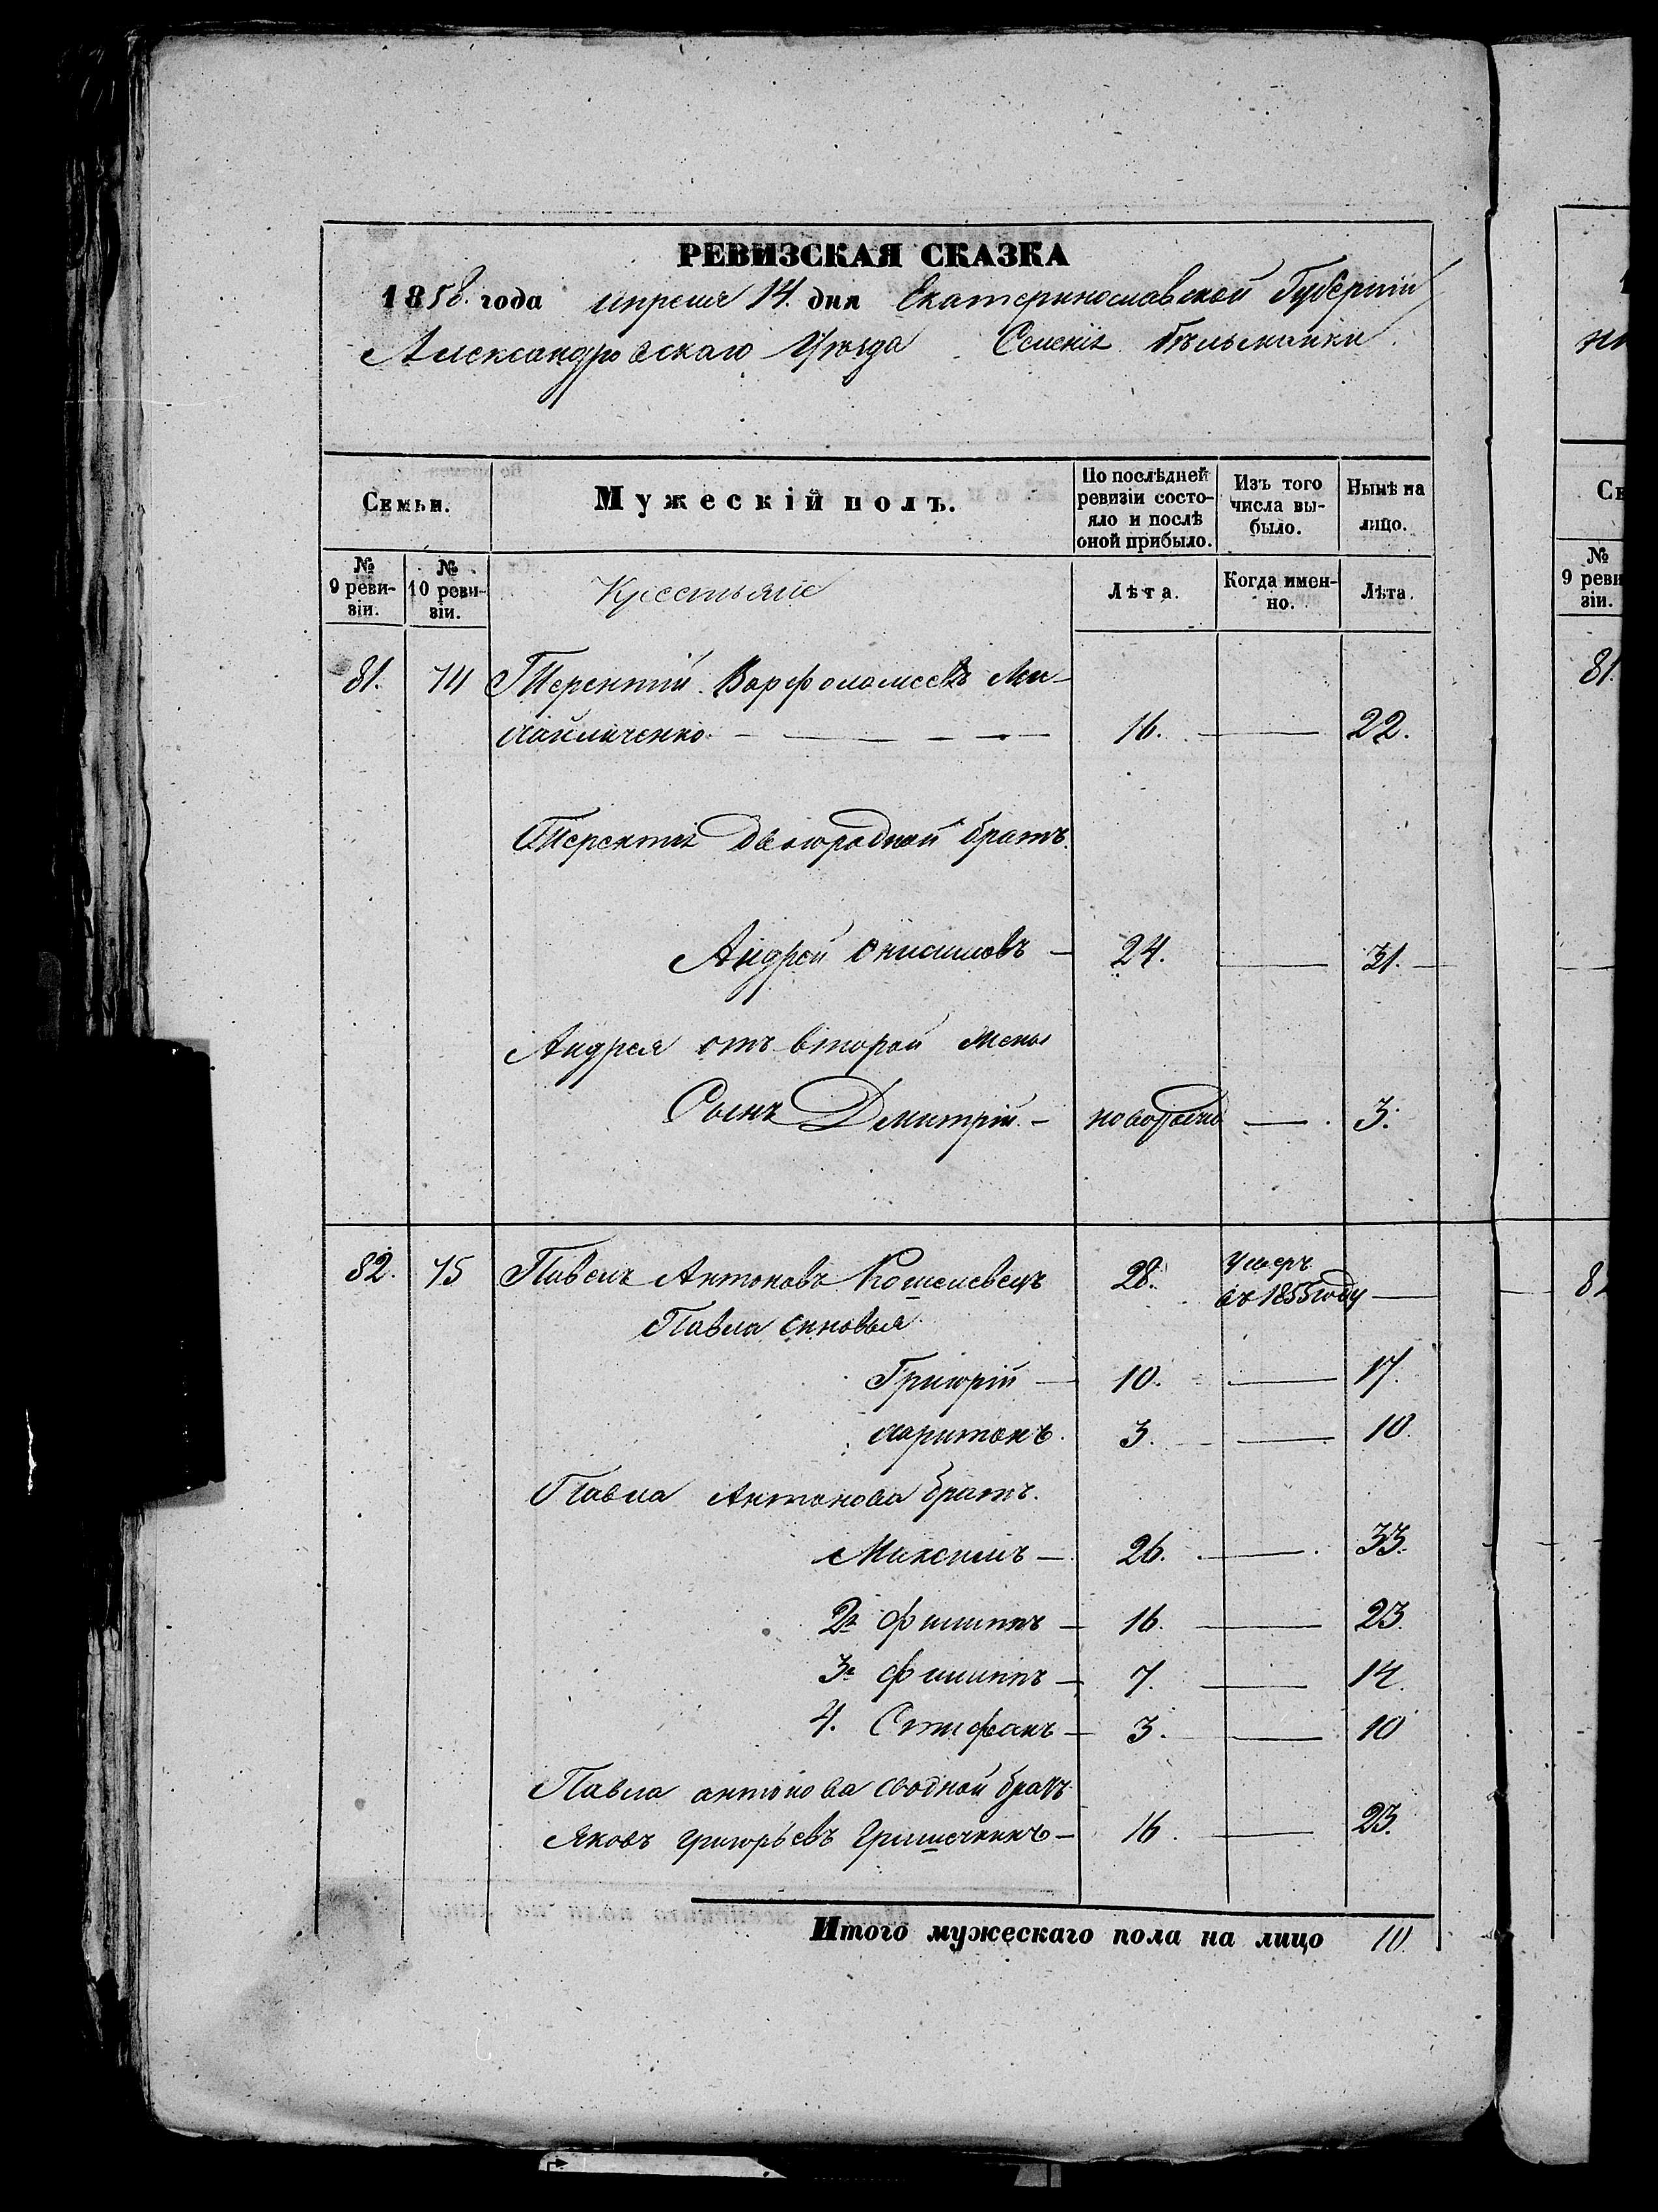 РЕВИЗСКАЯ СКАЗКА
1858. года апреля 14. дня Екатеринославской Губерніи
Александровскаго Уѣзда Селенія Бѣльманки.
Семьи.
Мужескій полъ.
По послѣдней ревизіи состояло и послѣ оной прибыло.
Изъ того числа выбыло.
Нынѣ на лицо.
№ 9 ревизіи.
№ 10 ревизіи.
Крестьяне
Лѣта.
Когда именно.
Лѣта.
81. 74 Терентій Варфоломеевъ Ми-
хайличенко 16. 22.
Терентія двоюродной братъ.
Андрей Онисимовъ 24. 31.
Андрея отъ второй жены
Сынъ Дмитрій новорожд 3.
82. 75 Павелъ Антоновъ Кошелевецъ 28. Умеръ
въ 1855 году
Павла синовья
Григорій 10. 17.
Харитонъ. 3. 10.
Павла Антонова братъ.
Максимъ 26. 33.
2й Филиппъ 16. 23.
3й Филиппъ 7. 14.
4. Стифанъ 3. 10
Павла антонова сводной братъ
Яковъ Григорьевъ Гришечкинъ 16. 23.
Итого мужескаго пола на лицо 10.
81.